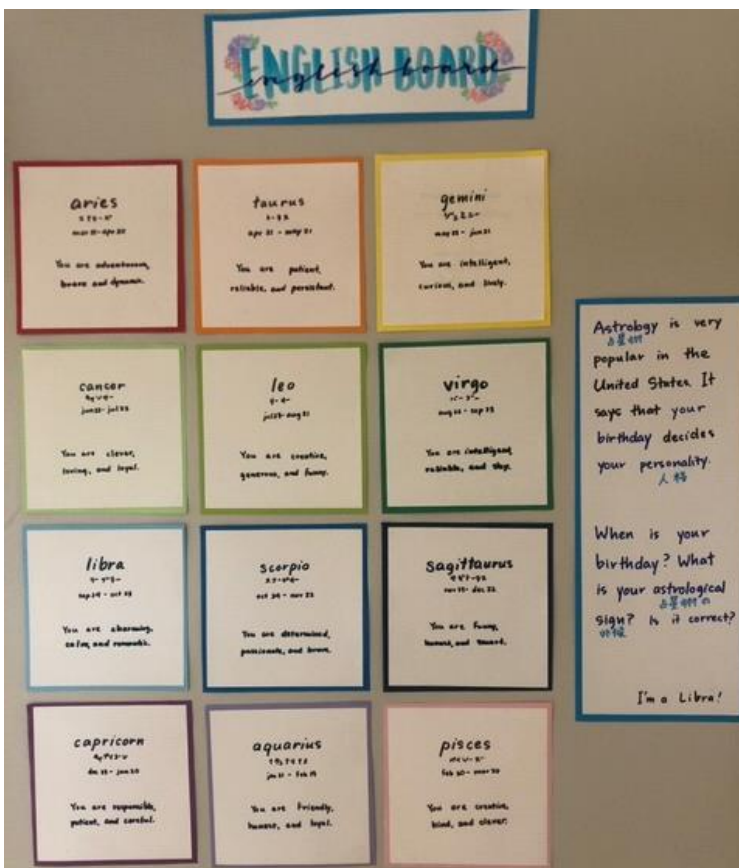 ENGLISH BOARD
english board
aries
You are adventurous,
brave and dynamic.
taurus
apr 21 - may 21
You are patient,
reliable, and persistent.
gemini
may 22 - jun 21
You are intelligent,
curious, and lively.
cancer
You are clever,
loving, and loyal.
leo
You are creative,
generous, and funny.
virgo
You are intelligent,
reliable, and shy.
libra
sep 24 - oct 23
You are charming,
calm, and romantic.
scorpio
oct 24 - nov 22
You are determined,
passionate, and brave.
sagittaurus
You are funny,
honest, and
capricorn
You are responsible,
patient, and careful.
aquarius
You are friendly,
honest, and loyal.
pisces
feb 20 - mar 20
You are creative,
kind, and clever.
Astrology is very
占星術
popular in the
United States. It
says that your
birthday decides
your personality.
人格
When is your
birthday? What
is your astrological
占星術の
sign? Is it correct?
I'm a Libra!